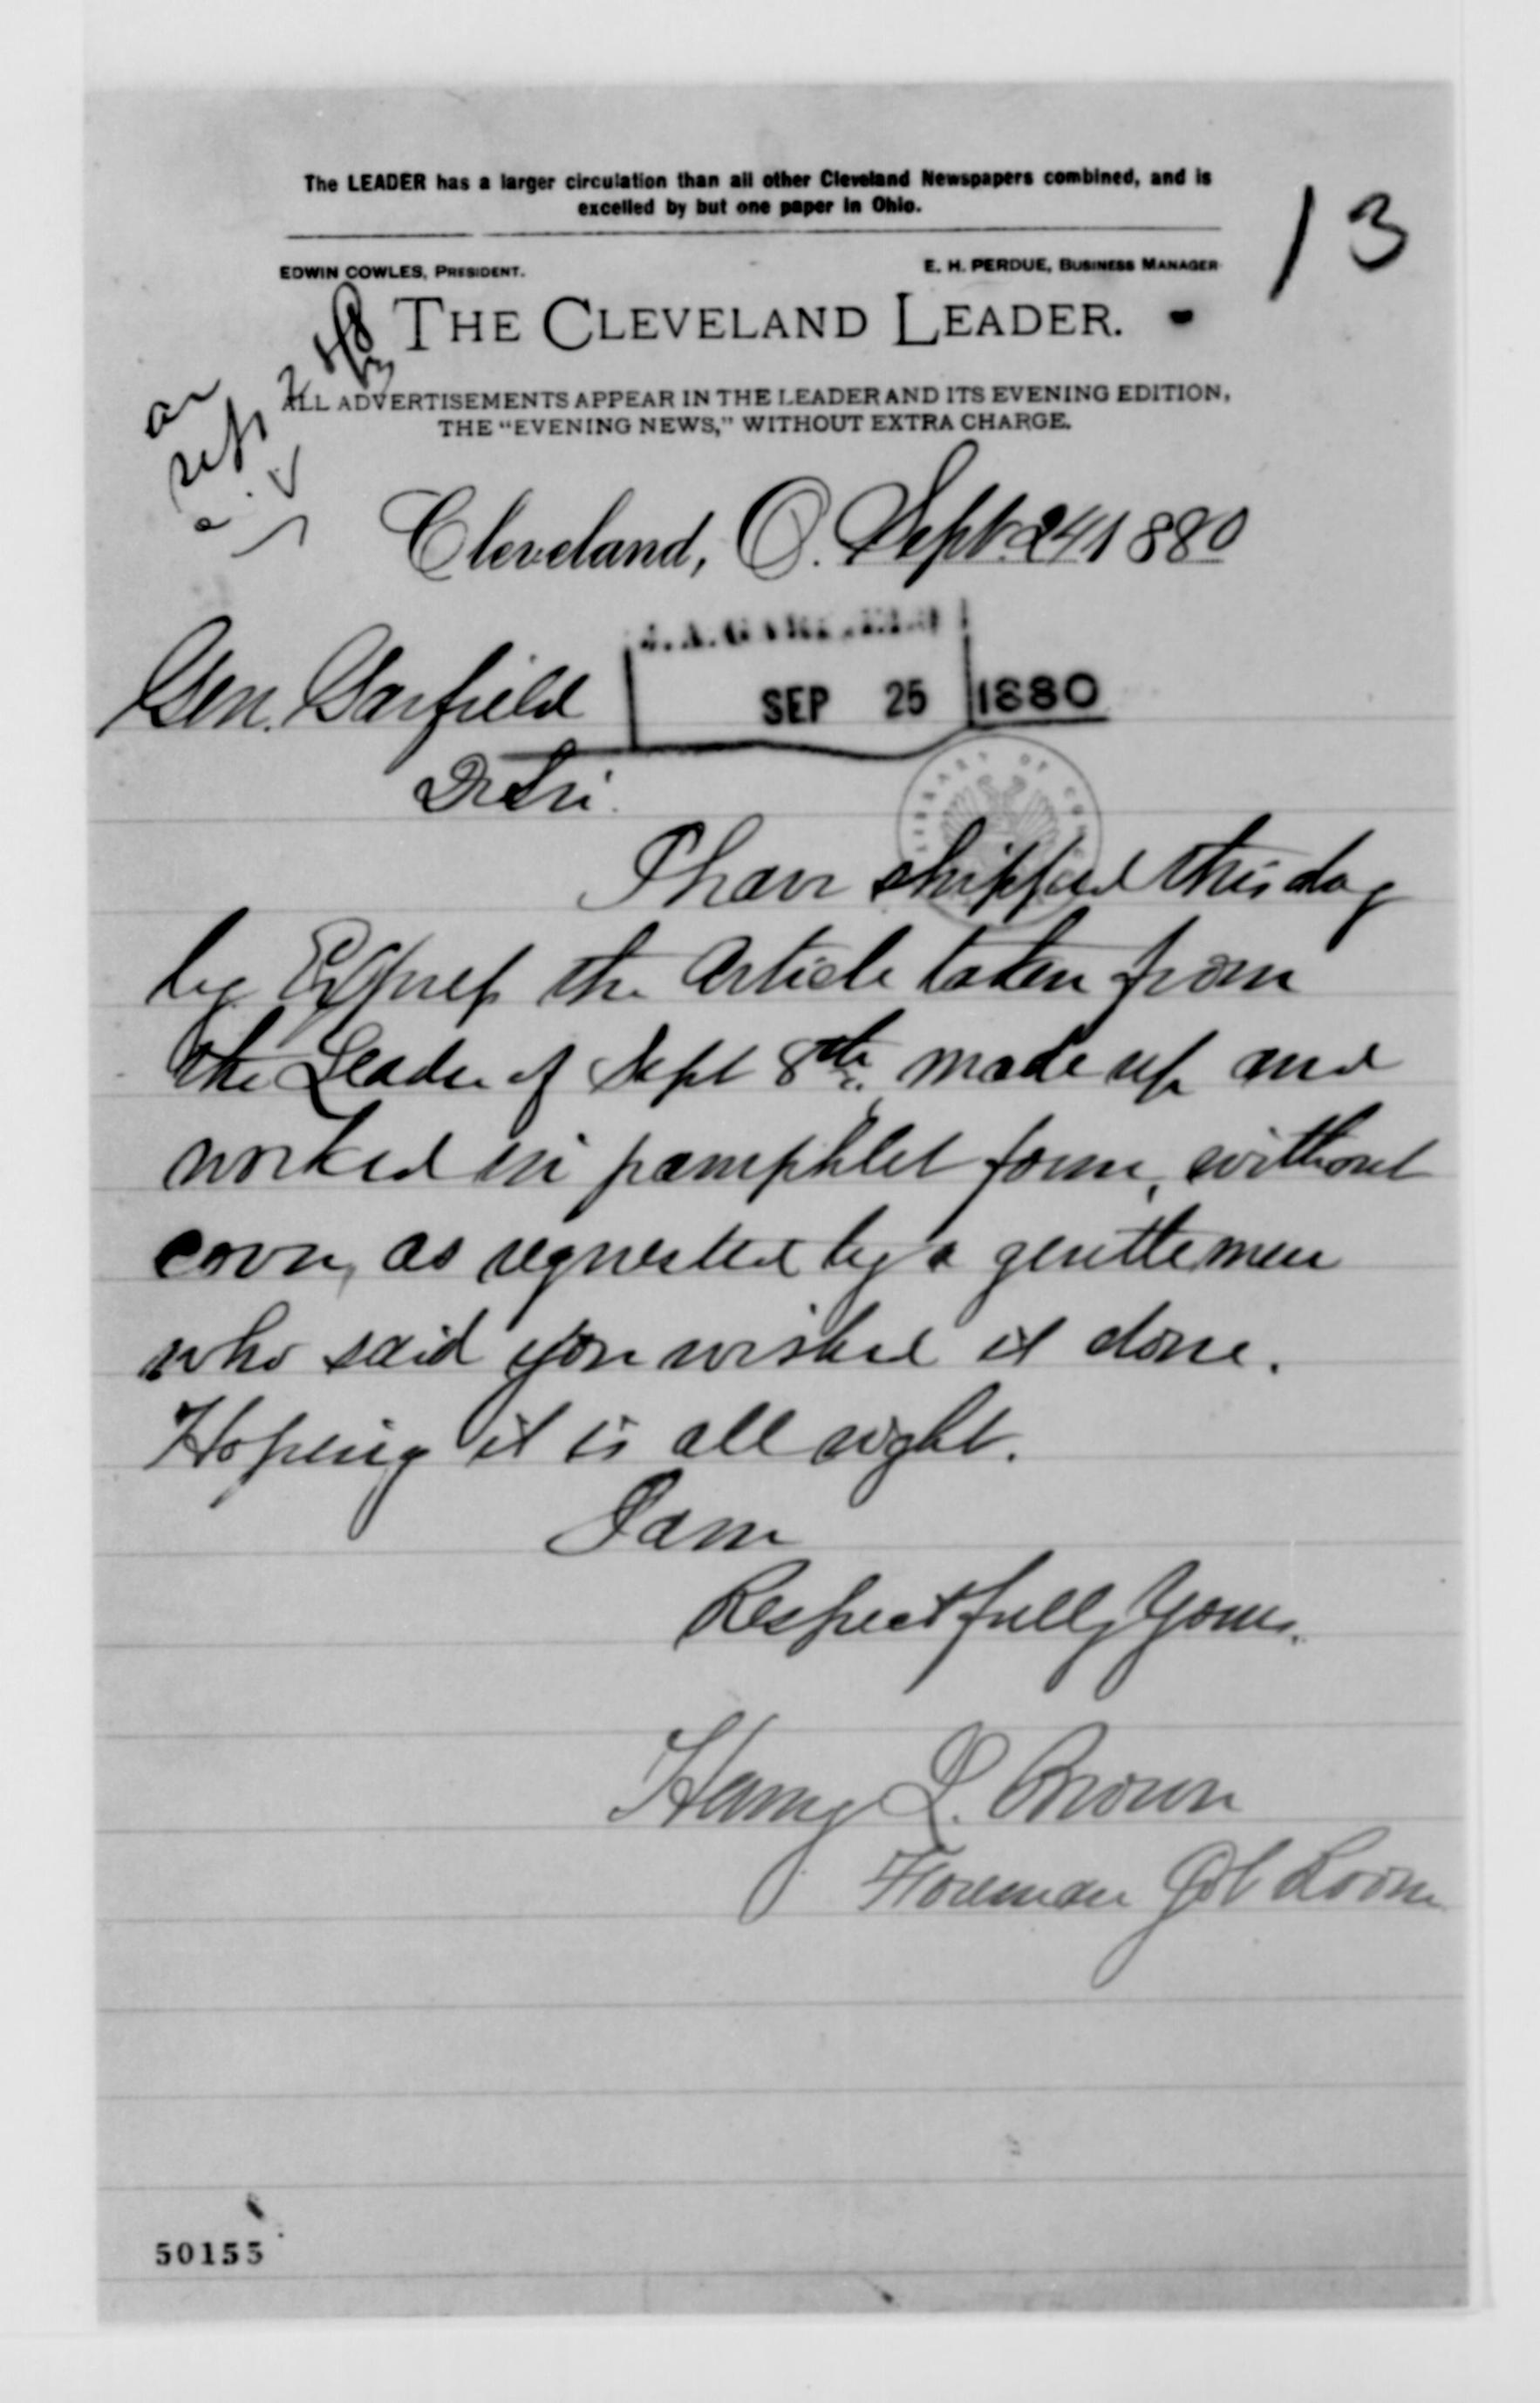 The LEADER has a larger circulation than all other Cleveland Newspapers combined, and is
excelled by but one paper in Ohio.
13
EDWIN COWLES, PRESIDENT.
E. H. PERDUE, BUSINESS MANAGER
THE CLEVELAND LEADER.
ALL ADVERTISEMENTS APPEAR IN THE LEADER AND ITS EVENING EDITION,
THE "EVENING NEWS," WITHOUT EXTRA CHARGE.
Cleveland, O. Sept. 24 1880
J. A. GARFIELD
SEP 25 1880
Gen. Garfield
Dr Sir.
LIBRARY OF CON
I have shipped this day
by Express the Article taken from
the Leader of Sept 8th, made up and
worked in pamphlet form, without
cover, as requested by a gentlemen
who said you wished it done.
Hoping it is all right.
I am
Respectfully Yours.
Harry L. Brown
Foreman Job Room
50155